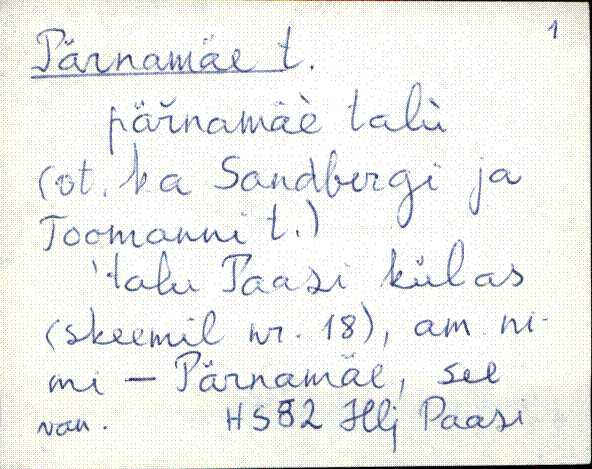 1
Pärnamäe t.
pär̆namäè talù
(vt. ka Sandbergi ja
Toomanni t.)
'talu Paasi külas
(skeemil nr. 18), am. ni-
mi – Pärnamäe, see
van. HS82 Hlj Paasi